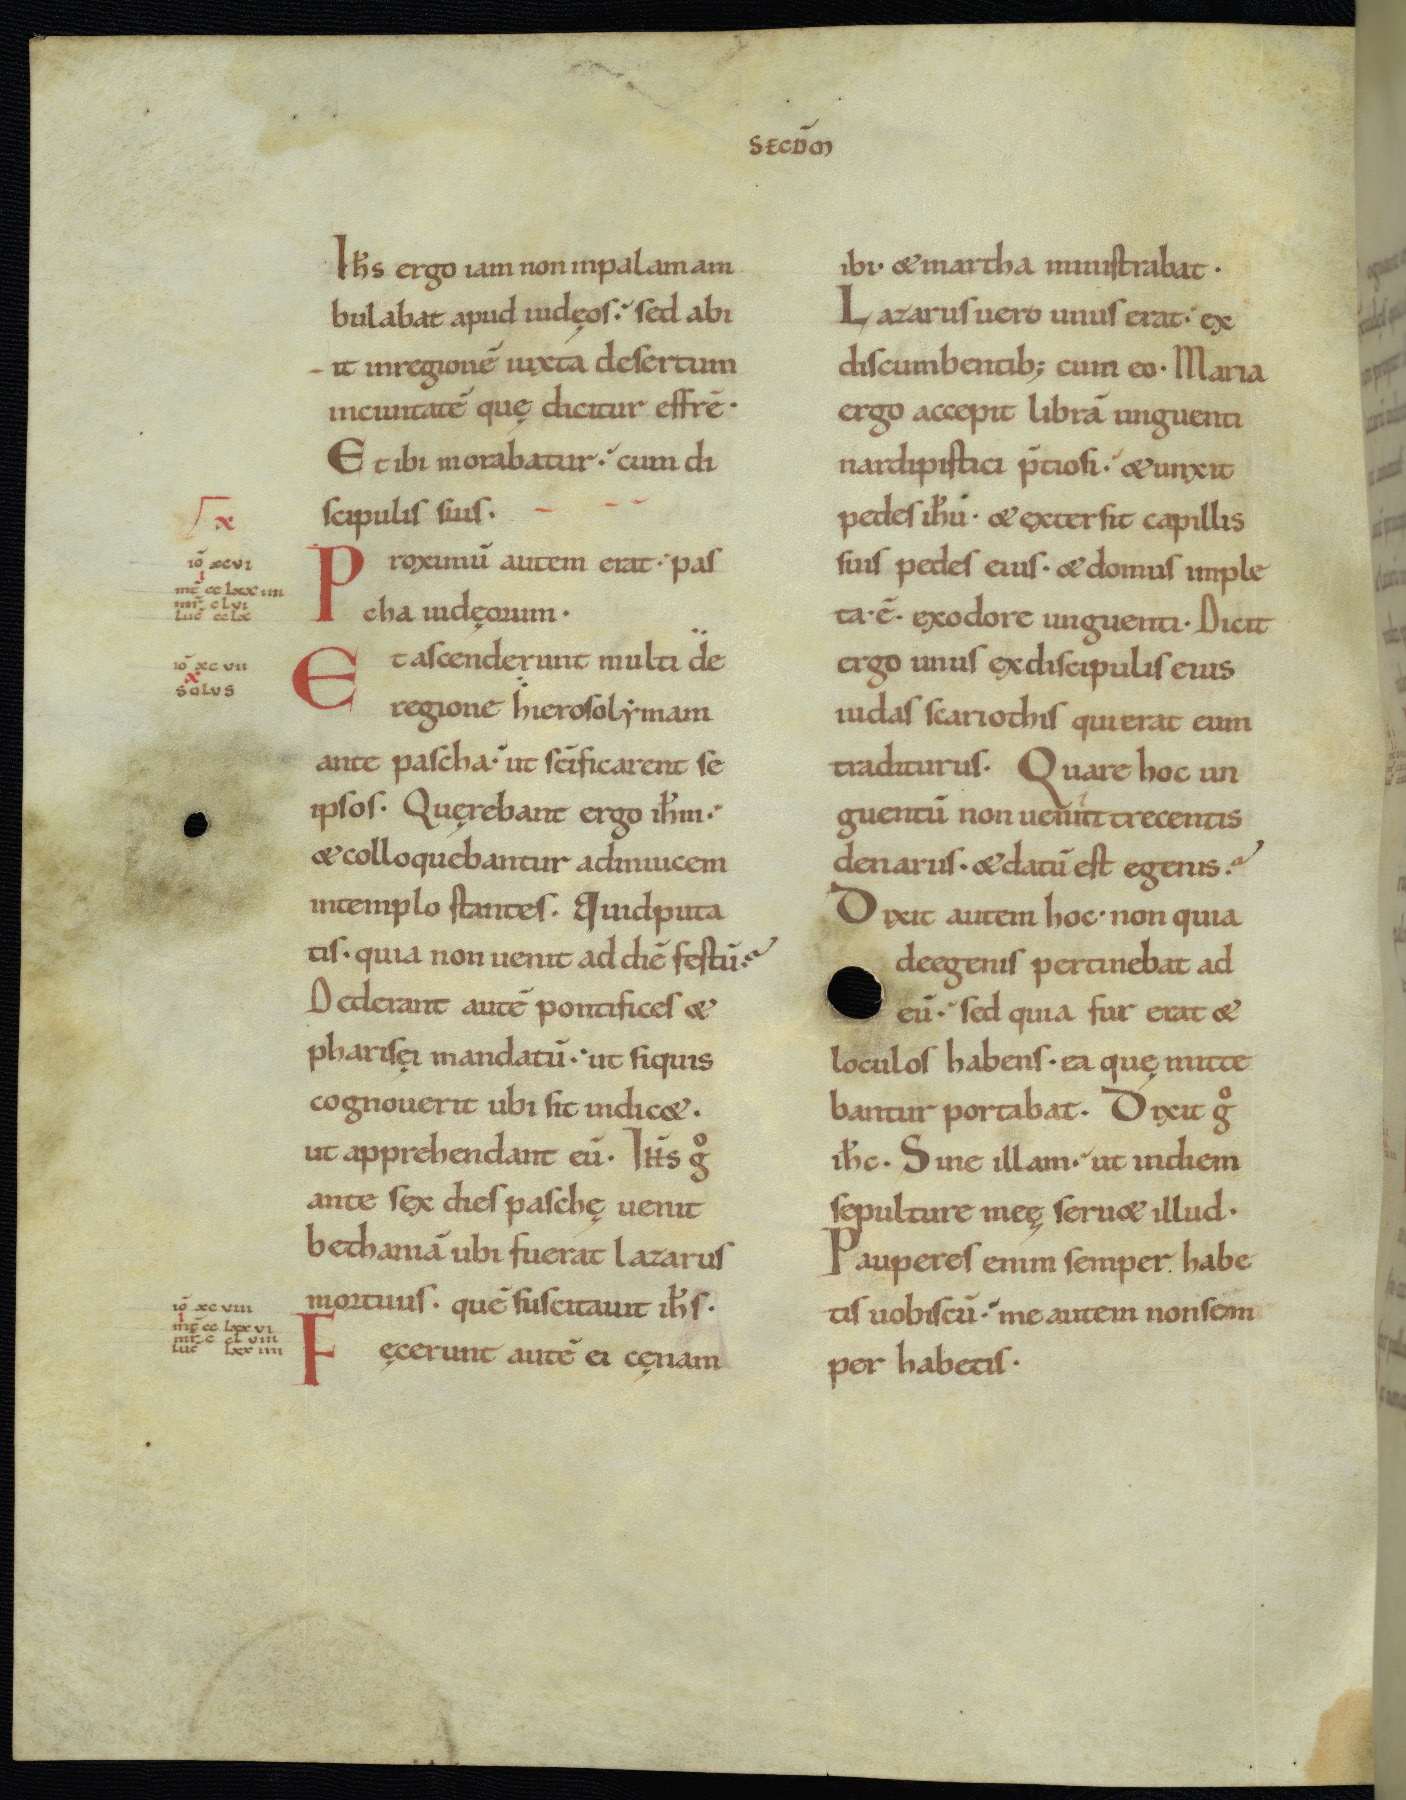 SECDM̄
Ih̄s ergo iam non inpalam am
bulabat apud iudęos. sed abi
it inregionē iuxta desertum
inciuitatē quę dicitur effrē.
Et ibi morabatur. cum di
scipulis suis.
X
iō xcvi
i
mt̄ cc lxxiiii
mr̄ clvi
luc̄ cclx
Proximū autem erat. pas
cha iudęorum.
iō xcvii
x
solus
Et ascenderunt multi de
regione hierosolẏmam
ante pascha. ut sc̄ificarent se
ipsos. Quęrebant ergo ih̄m.
& colloquebantur adinuicem
intemplo stantes. Quidputa
tis. quia non uenit ad diē festū.
Dederant autē pontifices &
pharisęi mandatū. ut siquis
cognouerit ubi sit indic&.
ut apprehendant eū. Ih̄s gͦ
ante sex dies paschę uenit
bethaniā ubi fuerat lazarus
mortuus. quē suscitauit ih̄s.
iō xcviii
i
mt̄ cc lxxvi
mr̄ c clviii
luc̄ lxxiiii
Fęcerunt autē ei cęnam
ibi. & martha ministrabat.
Lazarus uero unus erat. ex
discumbentib; cum eo. Maria
ergo accepit librā unguenti
nardipistici p̄tiosi. & unxit
pedes ih̄u. & extersit capillis
suis pedes eius. & domus imple
ta.ē. exodore unguenti. Dicit
ergo unus exdiscipulis eius
iudas scariothis quierat eum
traditurus. Quare hoc un
guentū non ueniit trecentis
denariis. & datū est egenis.
Dixit autem hoc. non quia
deegenis pertinebat ad
eū. sed quia fur erat &
loculos habens. ea quę mitte
bantur portabat. Dixit gͦ
ih̄c. Sine illam. ut indiem
sepulture meę seru& illud.
Pauperes enim semper habe
tis uobiscū. me autem nonsem
per habetis.